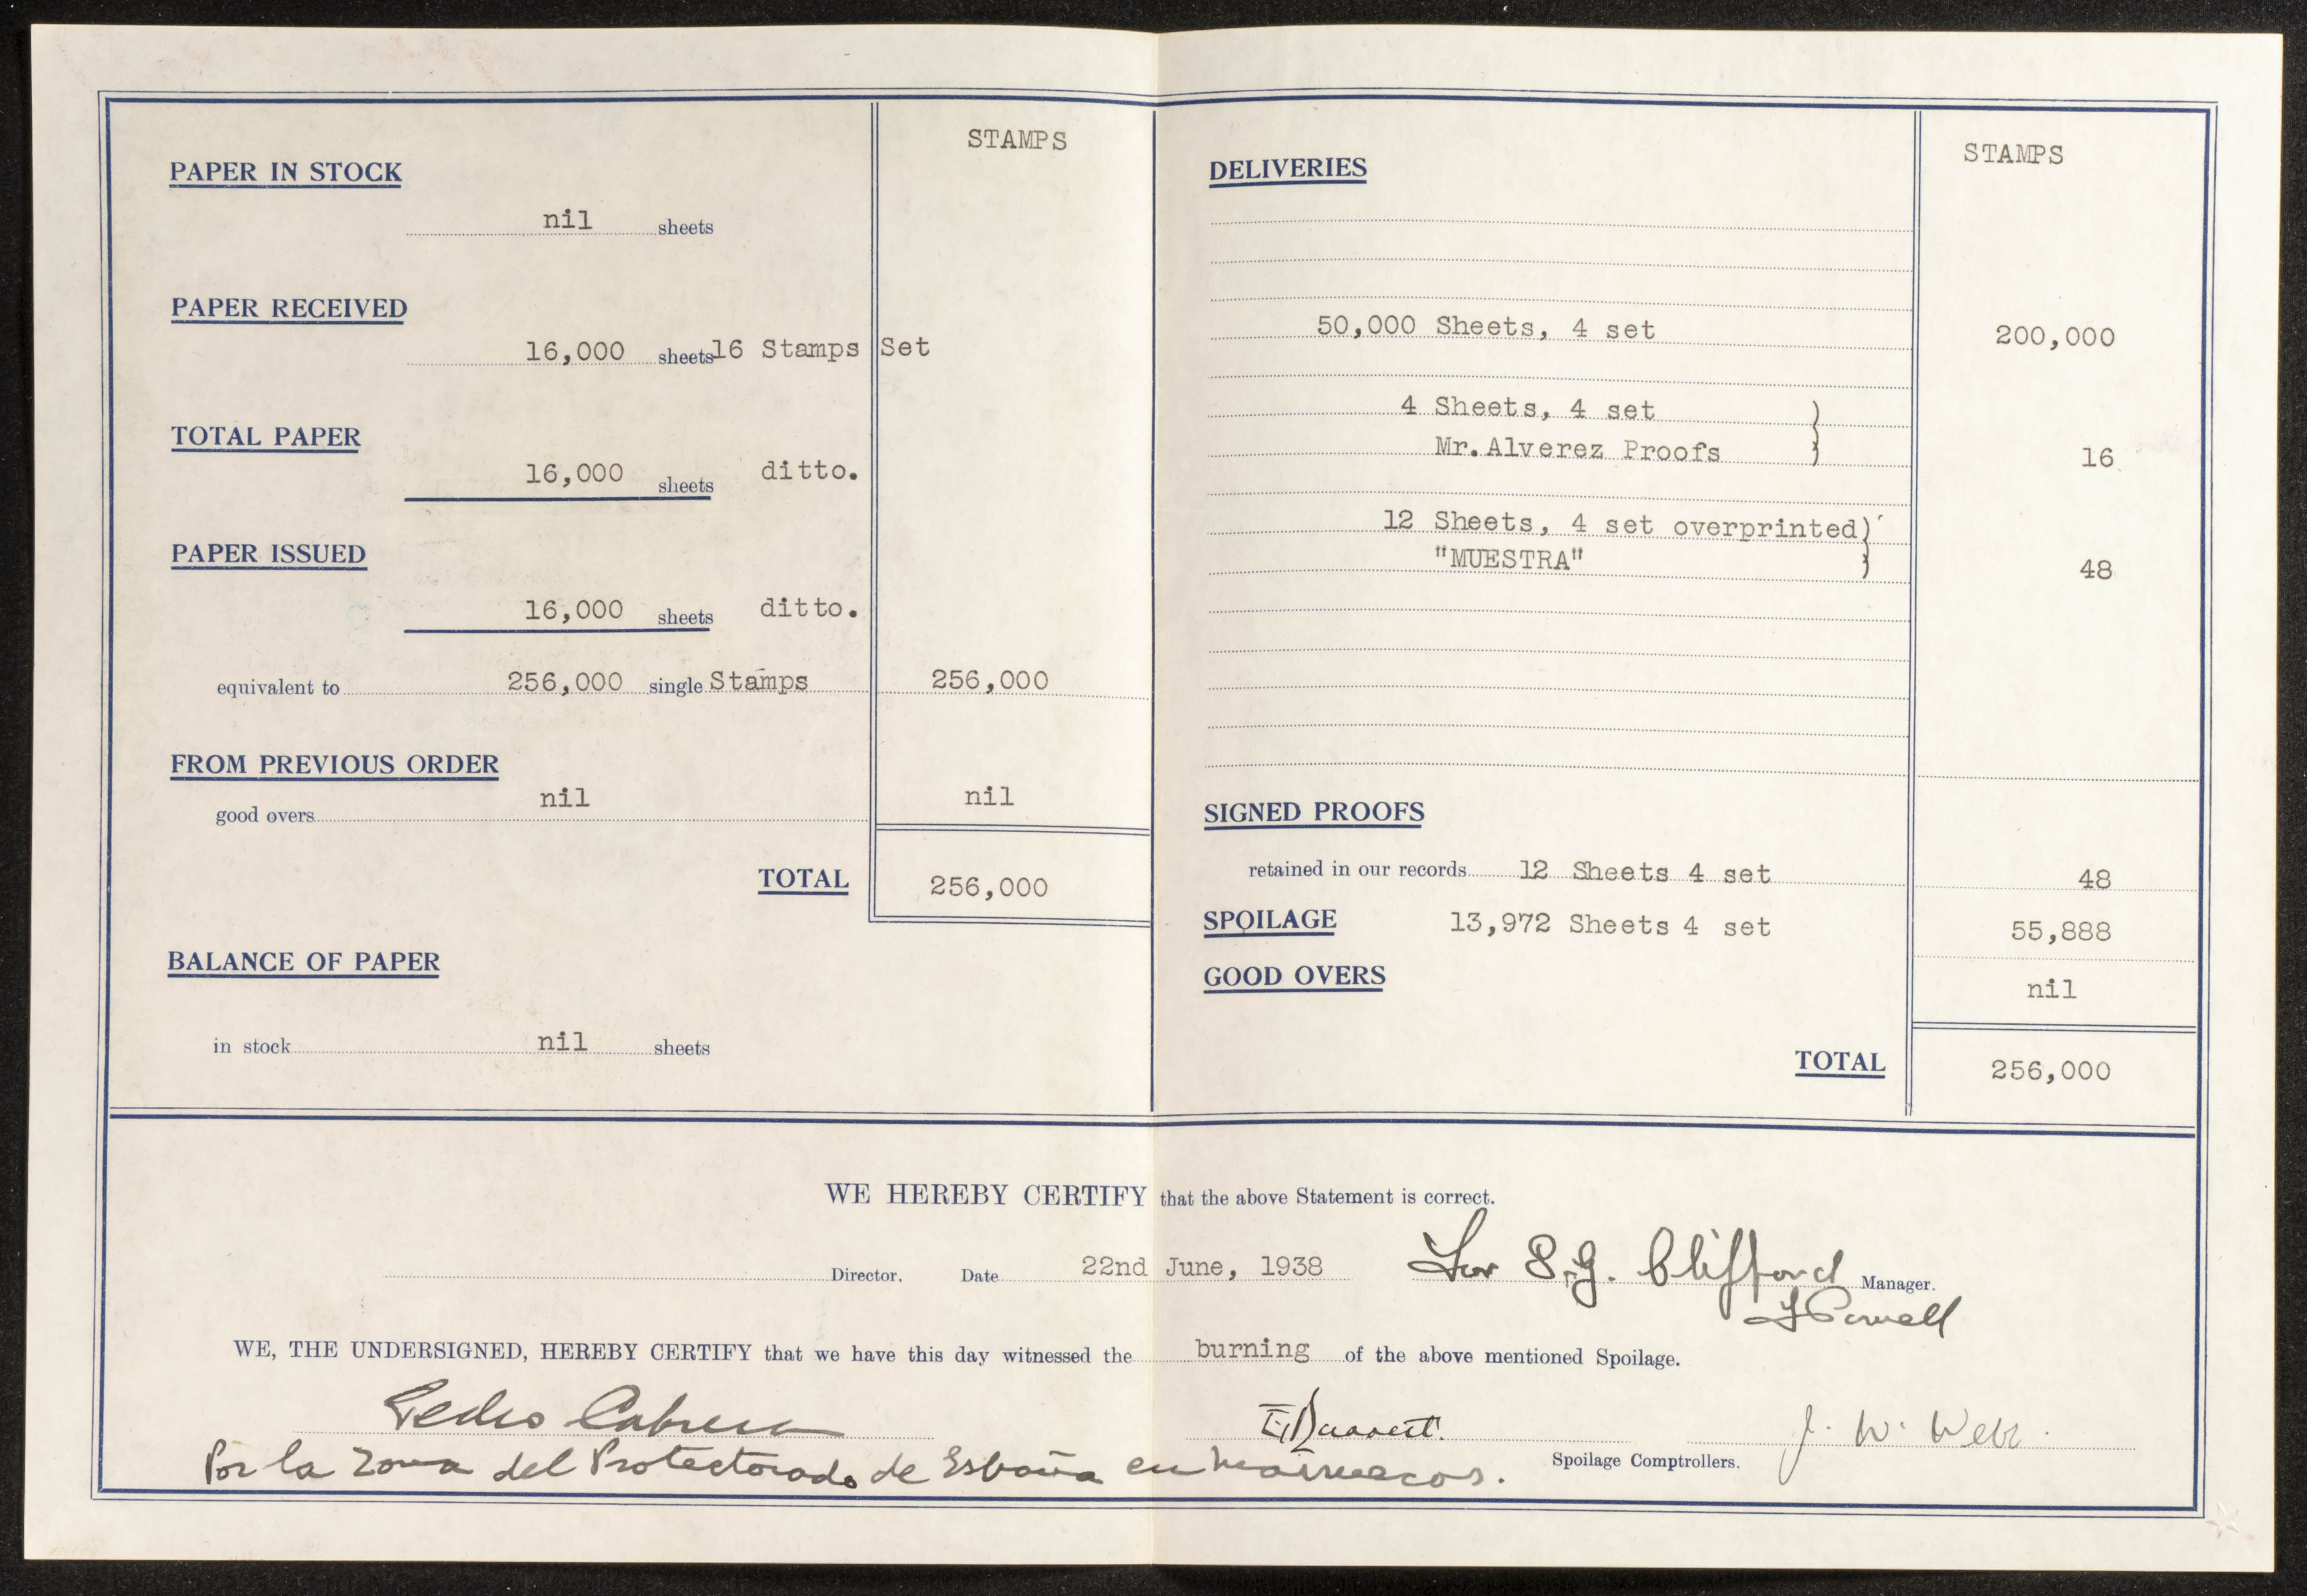 STAMPS
PAPER IN STOCK
nil sheets
PAPER RECEIVED
16,000 sheets 16 Stamps Set
TOTAL PAPER
16,000 sheets ditto.
PAPER ISSUED
16,000 sheets ditto.
equivalent to 256,000 single Stamps 256,000
FROM PREVIOUS ORDER
good overs nil nil
TOTAL 256,000
BALANCE OF PAPER
in stock nil sheets
STAMPS
DELIVERIES
50,000 Sheets, 4 set 200,000
4 Sheets, 4 set
Mr.Alverez Proofs 16
12 Sheets, 4 set overprinted
"MUESTRA" 48
SIGNED PROOFS
retained in our records 12 Sheets 4 set 48
SPOILAGE 13,972 Sheets 4 set 55,888
GOOD OVERS nil
TOTAL 256,000
WE HEREBY CERTIFY that the above Statement is correct.
Director. Date 22nd June, 1938 For S.G. Clifford Manager.
WE, THE UNDERSIGNED, HEREBY CERTIFY that we have this day witnessed the burning of the above mentioned Spoilage.
Pedro Cabrera J. W. Webb.
Spoilage Comptrollers.
Por la Zona del Protectorado de España en Marruecos.